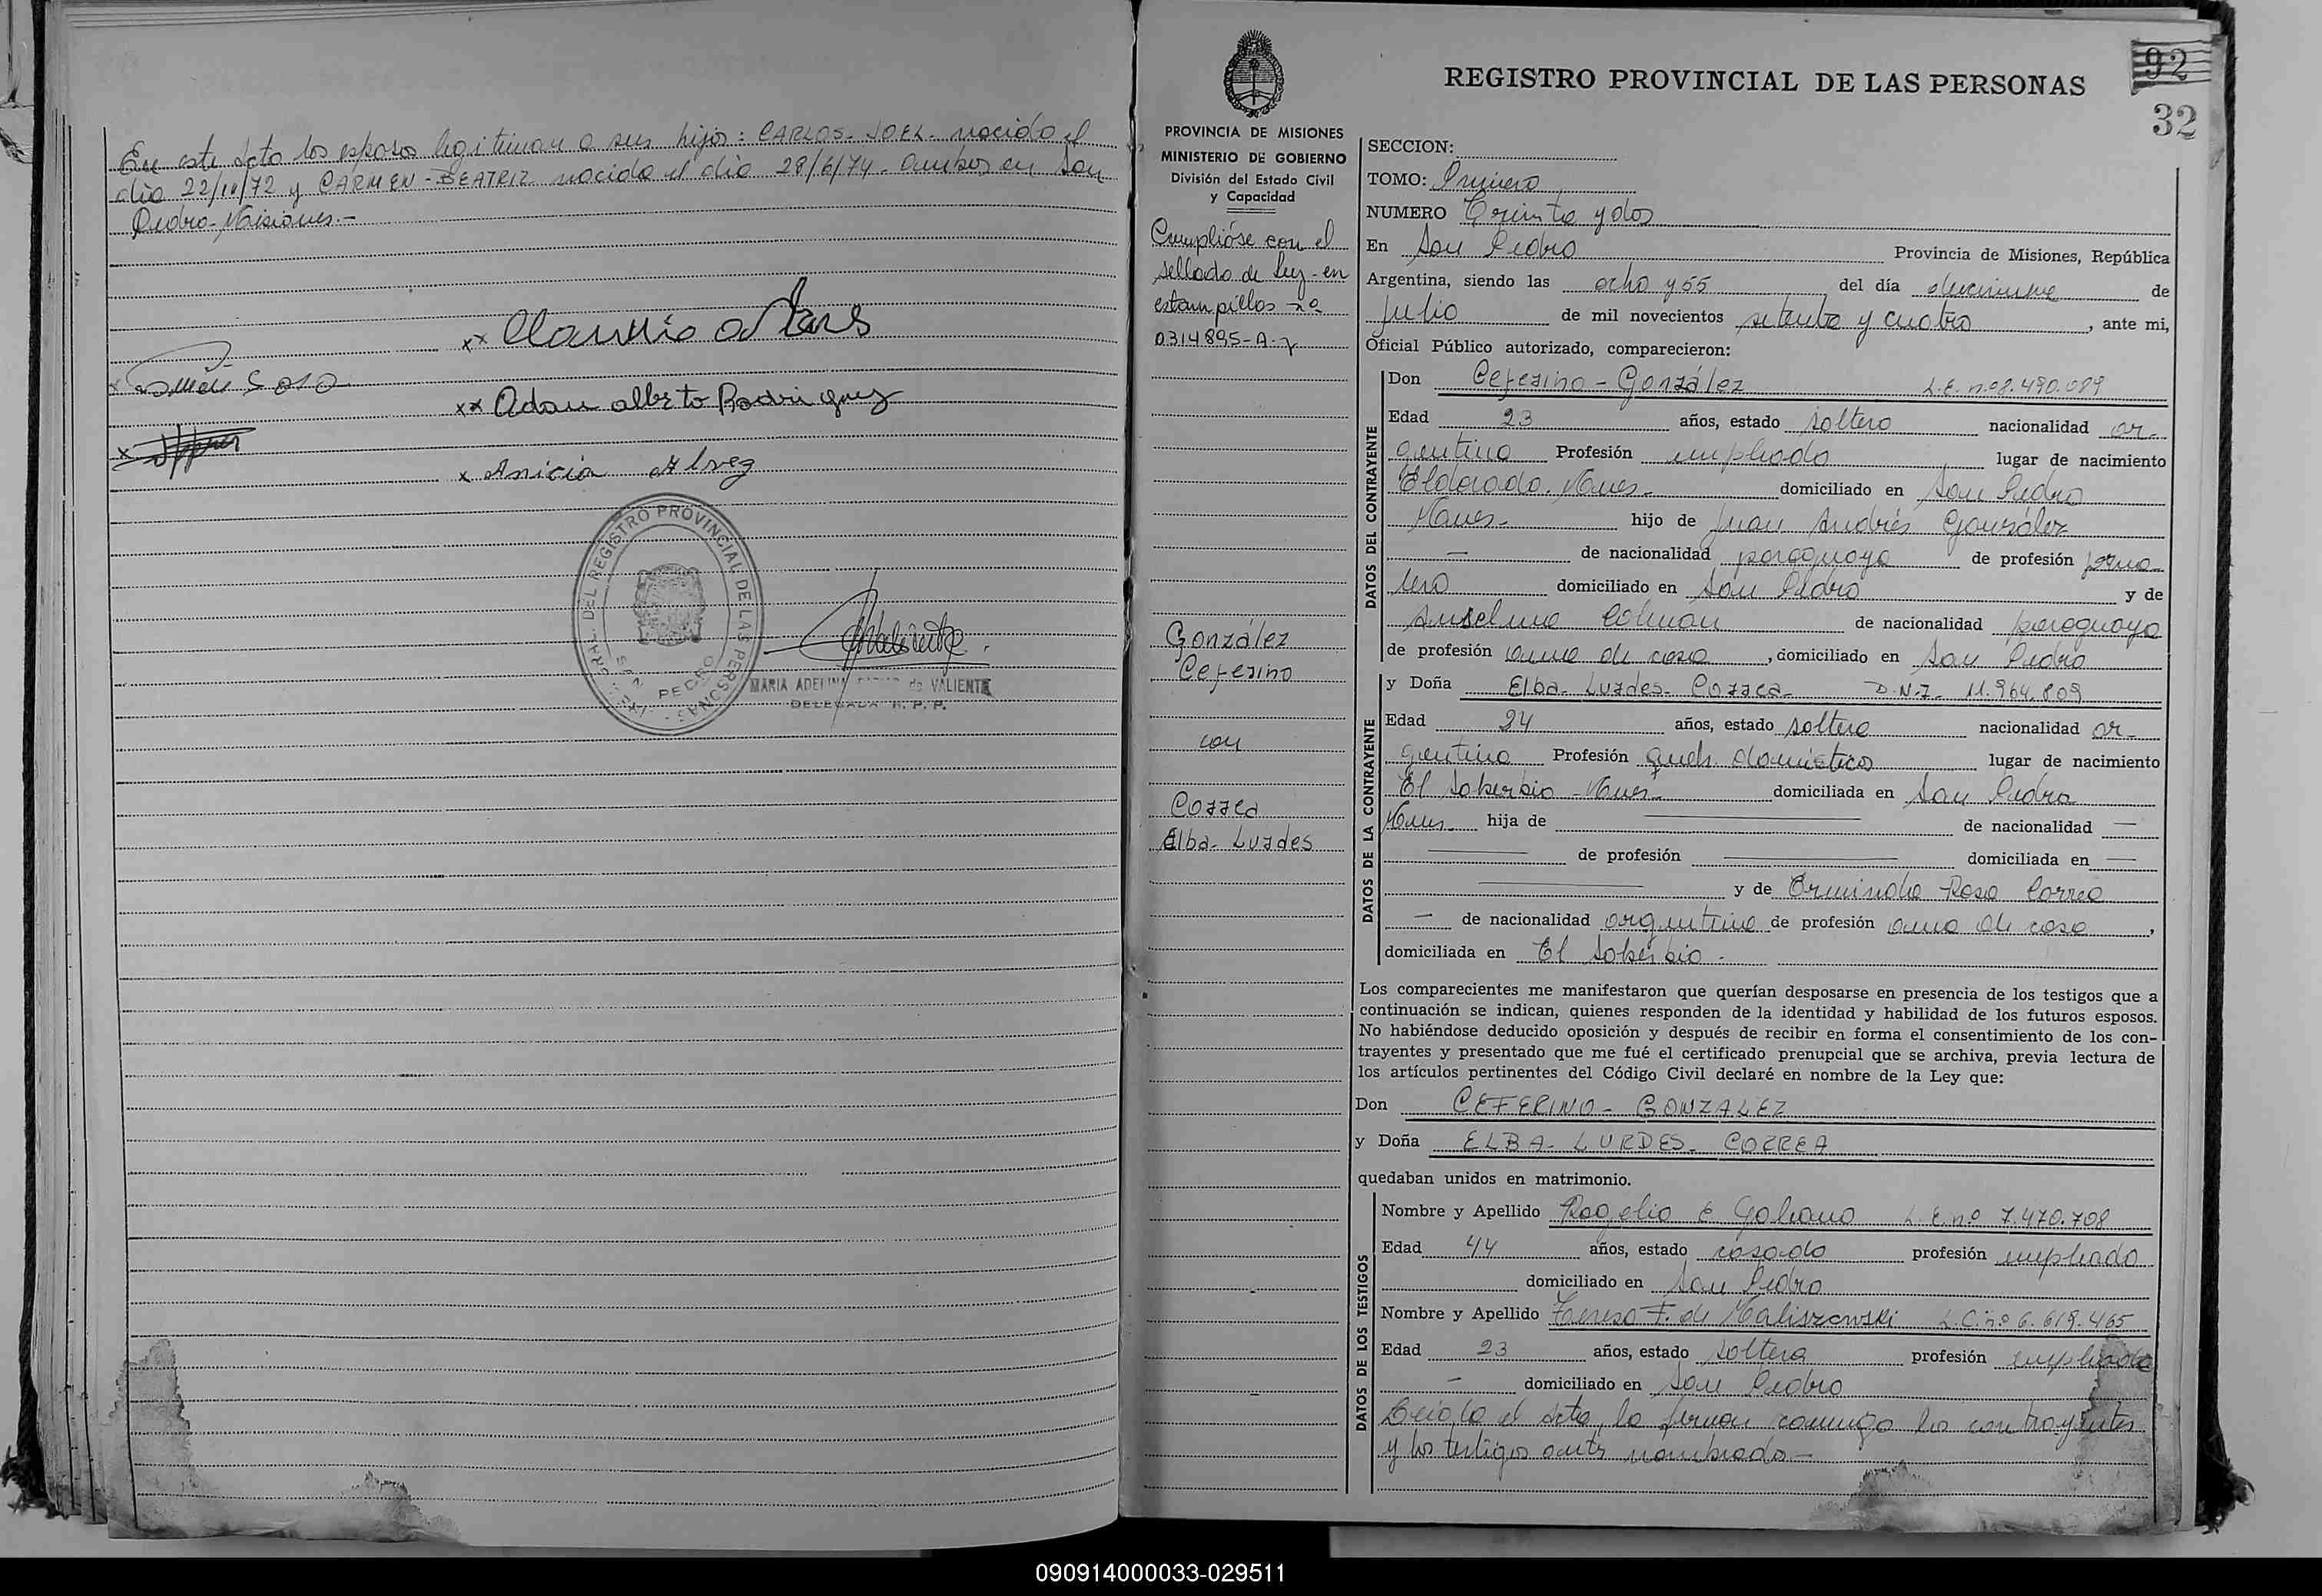 En este Acto los esposos legitiman a sus hijos: CARLOS-JOEL- nacido el
día 22/10/72 y CARMEN-BEATRIZ nacida el día 28/6/74. ambos en San
Pedro-Misiones.-
xx Claudio
x Sosa
xx Adan alberto Rodriguez
x Anicia Alvez
REGISTRO PROVINCIAL DE LAS PERSONAS
SAN PEDRO
MARIA ADELINA de VALIENTE
DELEGADA R. P. P.
92
REGISTRO PROVINCIAL DE LAS PERSONAS
32
PROVINCIA DE MISIONES
MINISTERIO DE GOBIERNO
División del Estado Civil
y Capacidad
Cumplióse con el
sellado de Ley-en
estampillas nº
0314895-A-
González
Ceferino
con
Correa
Elba-Lurdes
SECCION:
TOMO: Primero
NUMERO Treinta y dos
En San Pedro Provincia de Misiones, República
Argentina, siendo las ocho y 55 del día diecinueve de
Julio de mil novecientos setenta y cuatro, ante mi,
Oficial Público autorizado, comparecieron:
DATOS DEL CONTRAYENTE
Don Ceferino-González L.E. nº 8.490.089
Edad 23 años, estado soltero nacionalidad ar-
gentina Profesión empleado lugar de nacimiento
Eldorado. Mnes- domiciliado en San Pedro
Mnes- hijo de Juan Andrés González
— de nacionalidad paraguaya de profesión jorna-
lero domiciliado en San Pedro y de
Anselma Colman de nacionalidad paraguaya
de profesión ama de casa, domiciliado en San Pedro
DATOS DE LA CONTRAYENTE
y Doña Elba-Lurdes-Correa- D.N.I- 11.964.809
Edad 24 años, estado soltera nacionalidad ar-
gentina Profesión queh. domésticos lugar de nacimiento
El Soberbio-Mnes- domiciliada en San Pedro
Mnes- hija de — de nacionalidad —
— de profesión — domiciliada en —
— y de Erminda Rosa Correa
— de nacionalidad argentina de profesión ama de casa,
domiciliada en El Soberbio-
Los comparecientes me manifestaron que querían desposarse en presencia de los testigos que a
continuación se indican, quienes responden de la identidad y habilidad de los futuros esposos.
No habiéndose deducido oposición y después de recibir en forma el consentimiento de los con-
trayentes y presentado que me fué el certificado prenupcial que se archiva, previa lectura de
los artículos pertinentes del Código Civil declaré en nombre de la Ley que:
Don CEFERINO-GONZALEZ
y Doña ELBA-LURDES-CORREA
quedaban unidos en matrimonio.
DATOS DE LOS TESTIGOS
Nombre y Apellido Rogelio E. Galeano L.E. nº 7.470.708
Edad 44 años, estado casado profesión empleado
domiciliado en San Pedro
Nombre y Apellido Teresa F. de Maliszewski L.C. nº 6.619.465
Edad 23 años, estado soltera profesión empleada
— domiciliado en San Pedro
Leída el Acta, la firman conmigo los contrayentes
y los testigos antes nombrado-
090914000033-029511